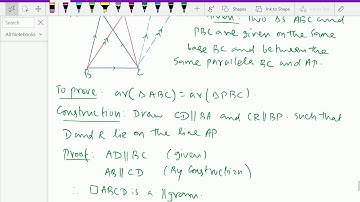 Ink to Shape
Ink to
All Notebooks
Given: Two Δs ABC and
PBC are given on the same
base BC and between the
same parallels BC and AP.
B
C
To prove: ar(ΔABC) = ar(ΔPBC).
Construction: Draw CD∥BA and CR∥BP such that
D and R lie on the line AP.
Proof: AD∥BC (given)
AB∥CD (By Construction)
∴ □ABCD is a ∥gram.